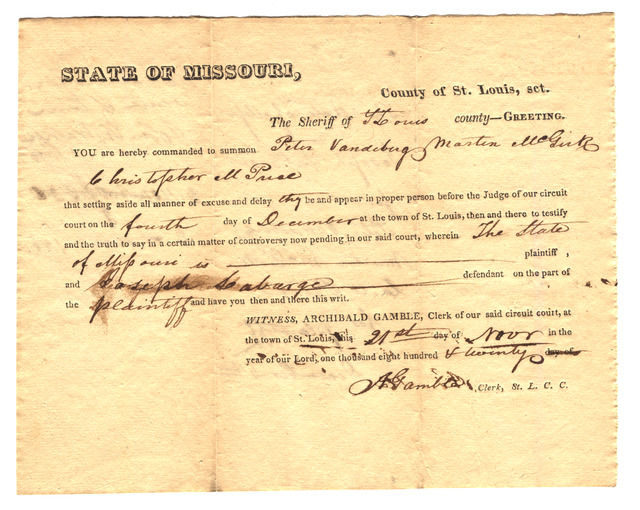 STATE OF MISSOURI,
County of St. Louis, sct.
The Sheriff of St Louis county—GREETING.
YOU are hereby commanded to summon Peter Vandebug Martin McGirk
Christopher M Price
that setting aside all manner of excuse and delay they be and appear in proper person before the Judge of our circuit
court on the fourth day of December at the town of St. Louis, then and there to testify
and the truth to say in a certain matter of controversy now pending in our said court, wherein The State
of Missouri is plaintiff,
and Joseph Labarge defendant on the part of
the plaintiff and have you then and there this writ.
WITNESS, ARCHIBALD GAMBLE, Clerk of our said circuit court, at
the town of St. Louis, this 21st day of Novr in the
year of our Lord, one thousand eight hundred & twenty day of
A Gamble Clerk, St. L. C. C.